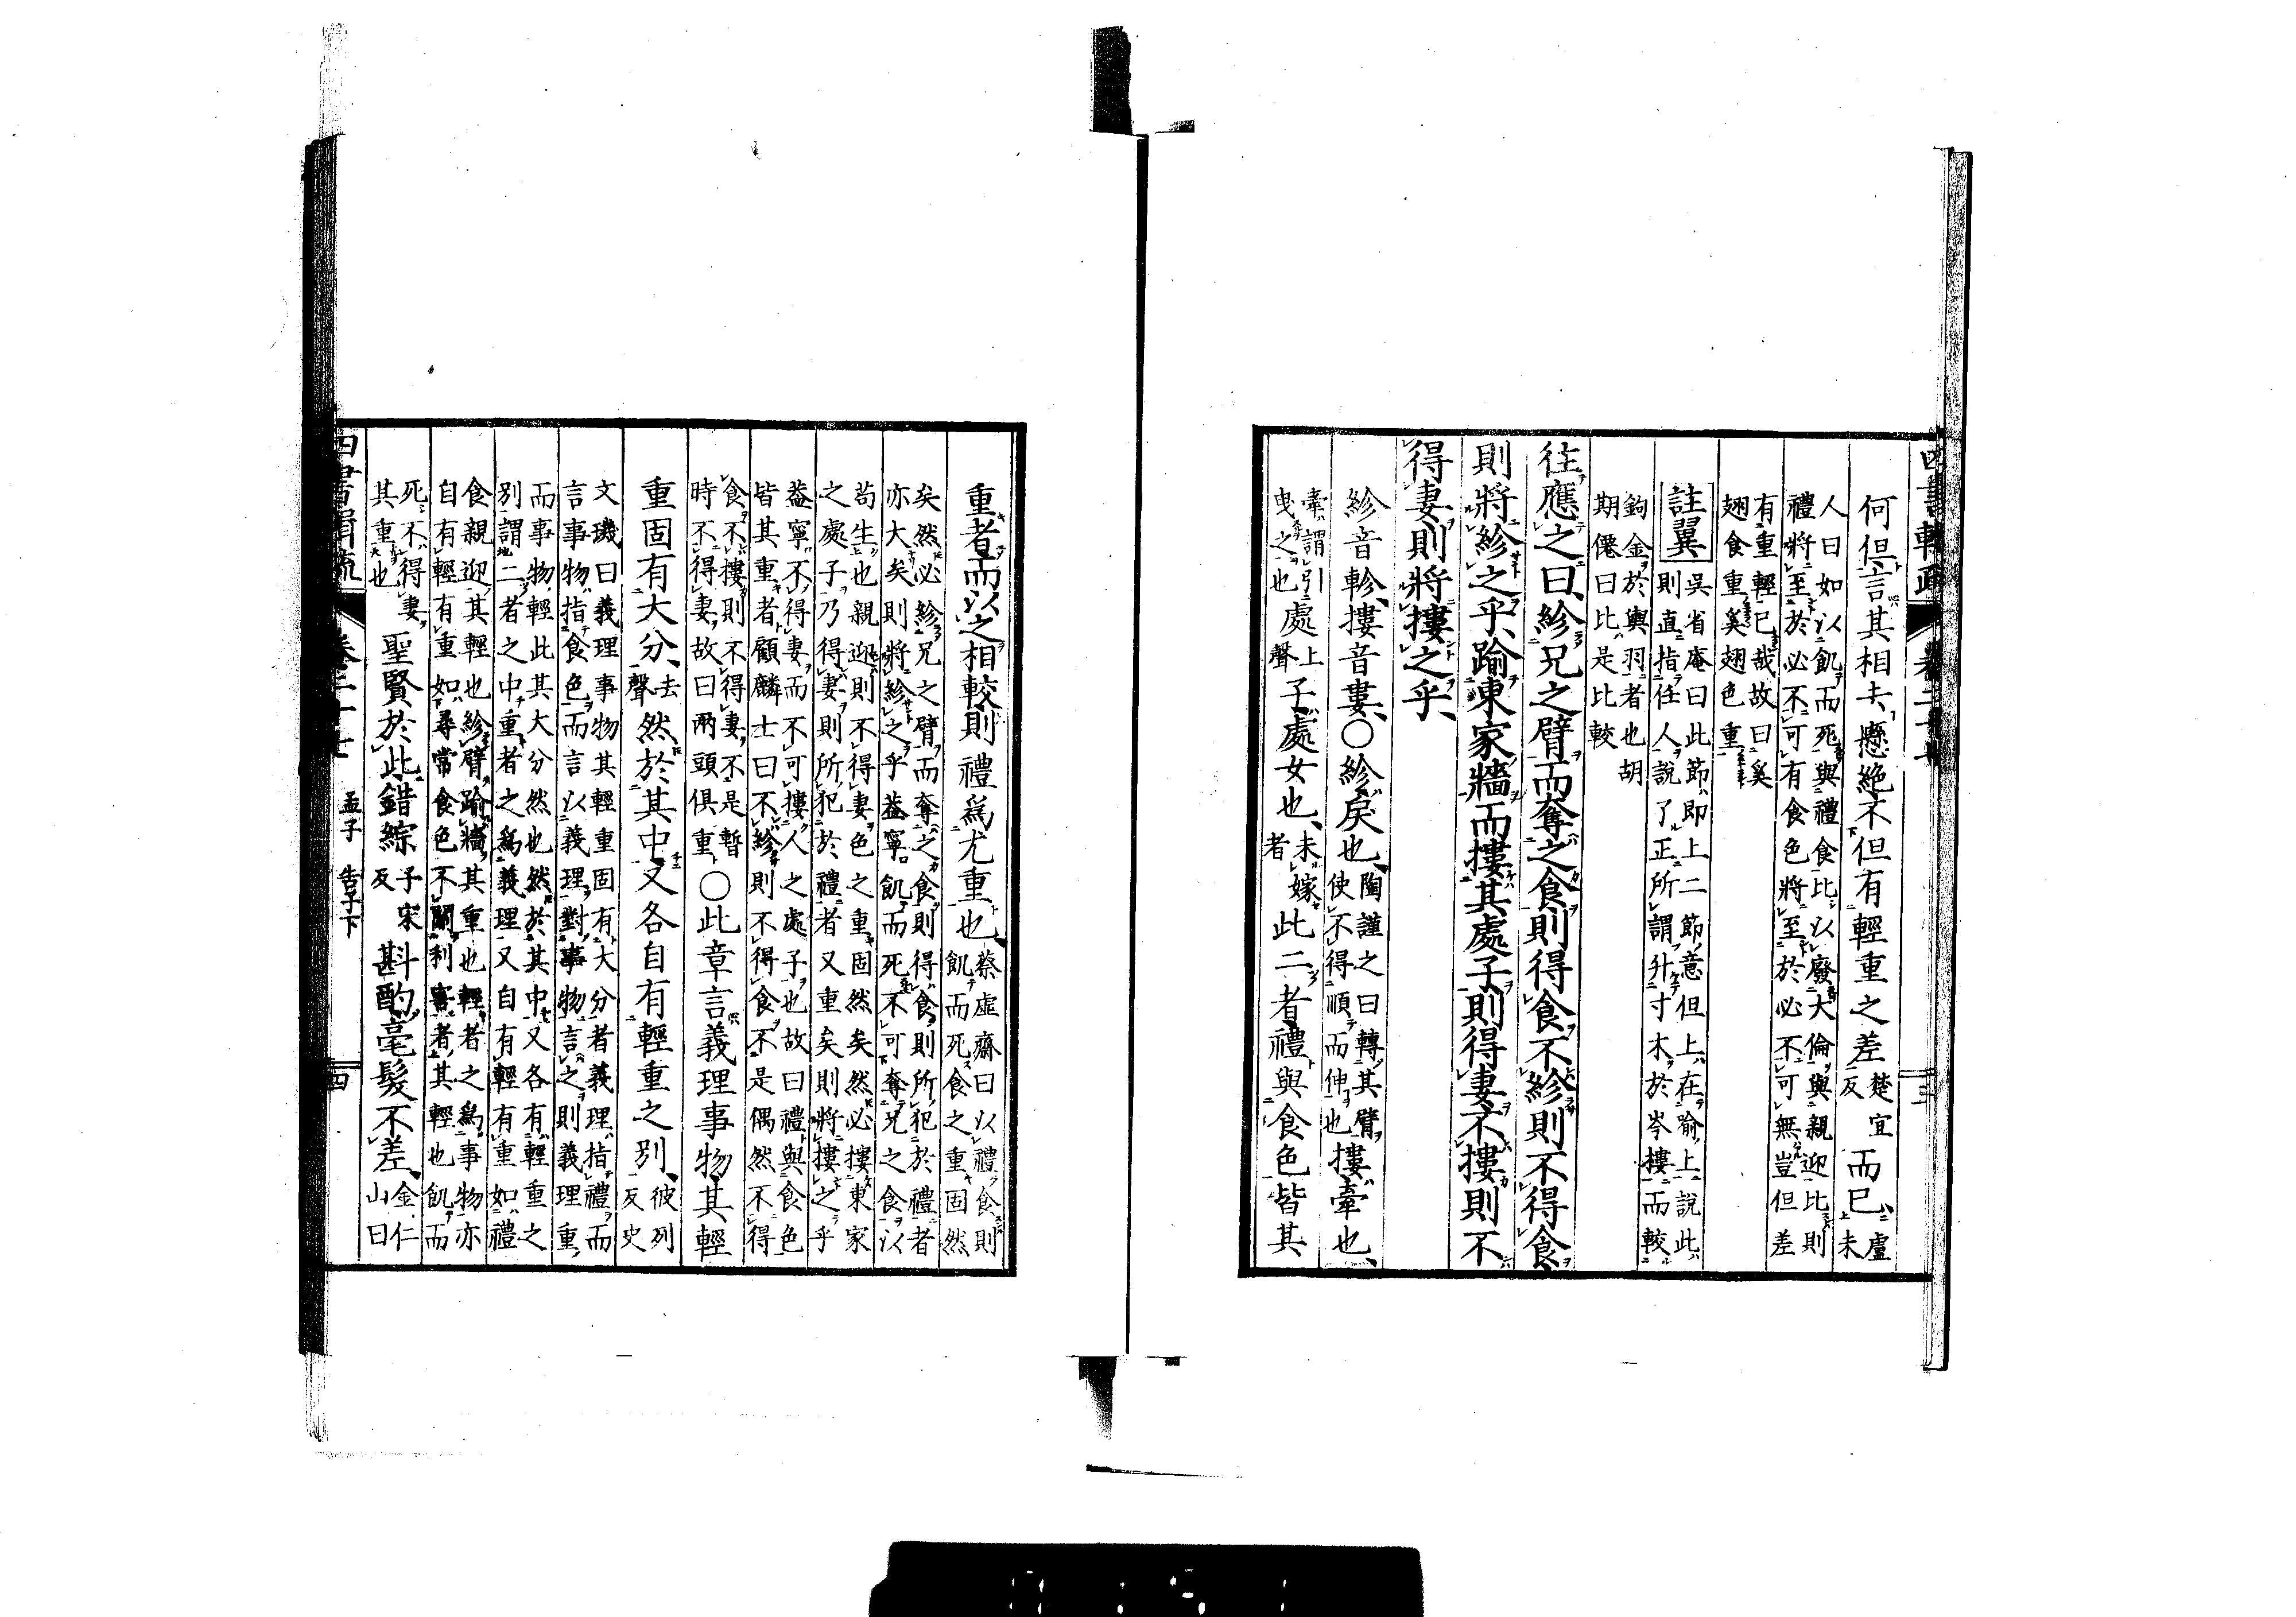 四書輯疏 卷二十七 三
何但言其相去懸絶不但有輕重之差楚宜反而已盧未
人曰如以飢而死與禮食比以廢大倫與親迎比則
禮將至於必不可有食色將至於必不可無豈但差
有重輕已哉故曰奚
翅食重奚翅色重
註翼 吳省庵曰此節即上二節意但上在喻上說此
則直指任人說了正所謂升寸木於岑樓而較
鉤金於輿羽者也胡
期僊曰比是比較
往應之曰紾兄之臂而奪之食則得食不紾則不得食
則將紾之乎踰東家牆而摟其處子則得妻不摟則不
得妻則將摟之乎
紾音軫摟音婁○紾戾也陶謹之曰轉其臂使不得順而伸也摟牽也
牽謂引曳之也處上聲子處女也未嫁者此二者禮與食色皆其
重者而以之相較則禮爲尤重也蔡虛齋曰以禮食則飢而死食之重固然
矣然必紾兄之臂而奪之食則得食則所犯於禮者
亦大矣則將紾之乎蓋寧飢而死不可奪兄之食以
苟生也親迎則不得妻色之重固然矣然必摟東家
之處子乃得妻則所犯於禮者又重矣則將摟之乎
蓋寧不得妻而不可摟人之處子也故曰禮與食色
皆其重者顧麟士曰不紾則不得食不是偶然不得
食不摟則不得妻不是暫
時不得妻故曰兩頭俱重○此章言義理事物其輕
重固有大分去聲然於其中又各自有輕重之別彼列反史
文璣曰義理事物其輕重固有大分者義理指禮而
言事物指食色而言以義理對事物言之則義理重
而事物輕此其大分然也然於其中又各有輕重之
別謂二者之中重者之爲義理又自有輕有重如禮
食親迎其輕也紾臂踰牆其重也輕者之爲事物亦
自有輕有重如尋常食色不關利害者其輕也飢而
死不得妻
其重也聖賢於此錯綜子宋反斟酌毫髮不差金仁山曰
四書輯疏 卷二十七 孟子 告子下 四